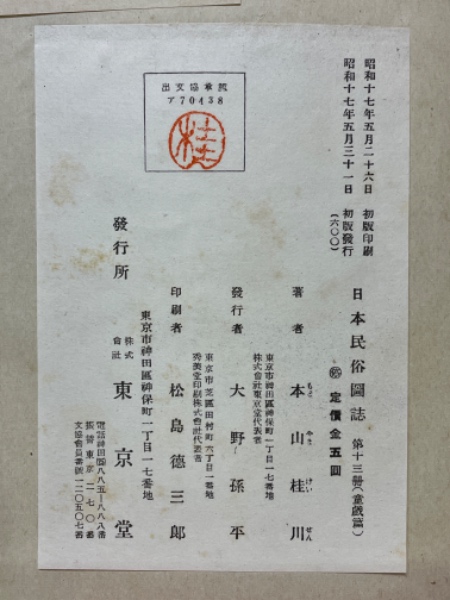 昭和十七年五月二十六日 初版印刷
昭和十七年五月三十一日 初版發行
(六〇〇)
日本民俗圖誌 第十三冊(童戯篇)
定價金五圓
著者 本山桂川
もと やま けい せん
東京市神田區神保町一丁目一七番地
株式會社東京堂代表者
發行者 大野孫平
東京市芝區田村町六丁目一番地
秀美堂印刷株式會社代表者
印刷者 松島德三郎
東京市神田區神保町一丁目一七番地
發行所 株式會社 東京堂
電話神田
振替東京二七〇番
文協會員番號一二〇五〇七番
出文協承認
ア70438
桂